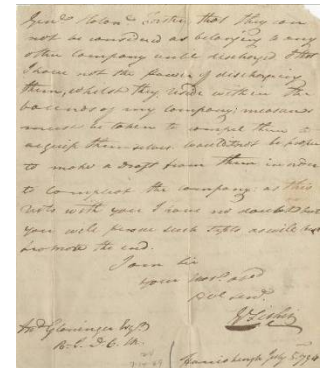 that they can
not be considered as belonging to any
other company until discharged & that
I have not the power of discharging
them, whilst they reside within the
bounds of my company; measures
must be taken to compel them to
equip themselves
to make a draft from them in order
to compleat the company; as this
rests with you I have no doubt but
you will pursue such steps as will best
promote the end.
I am Sir
your most
Jno Gloninger Esqr
Harrisburgh July 5 1794